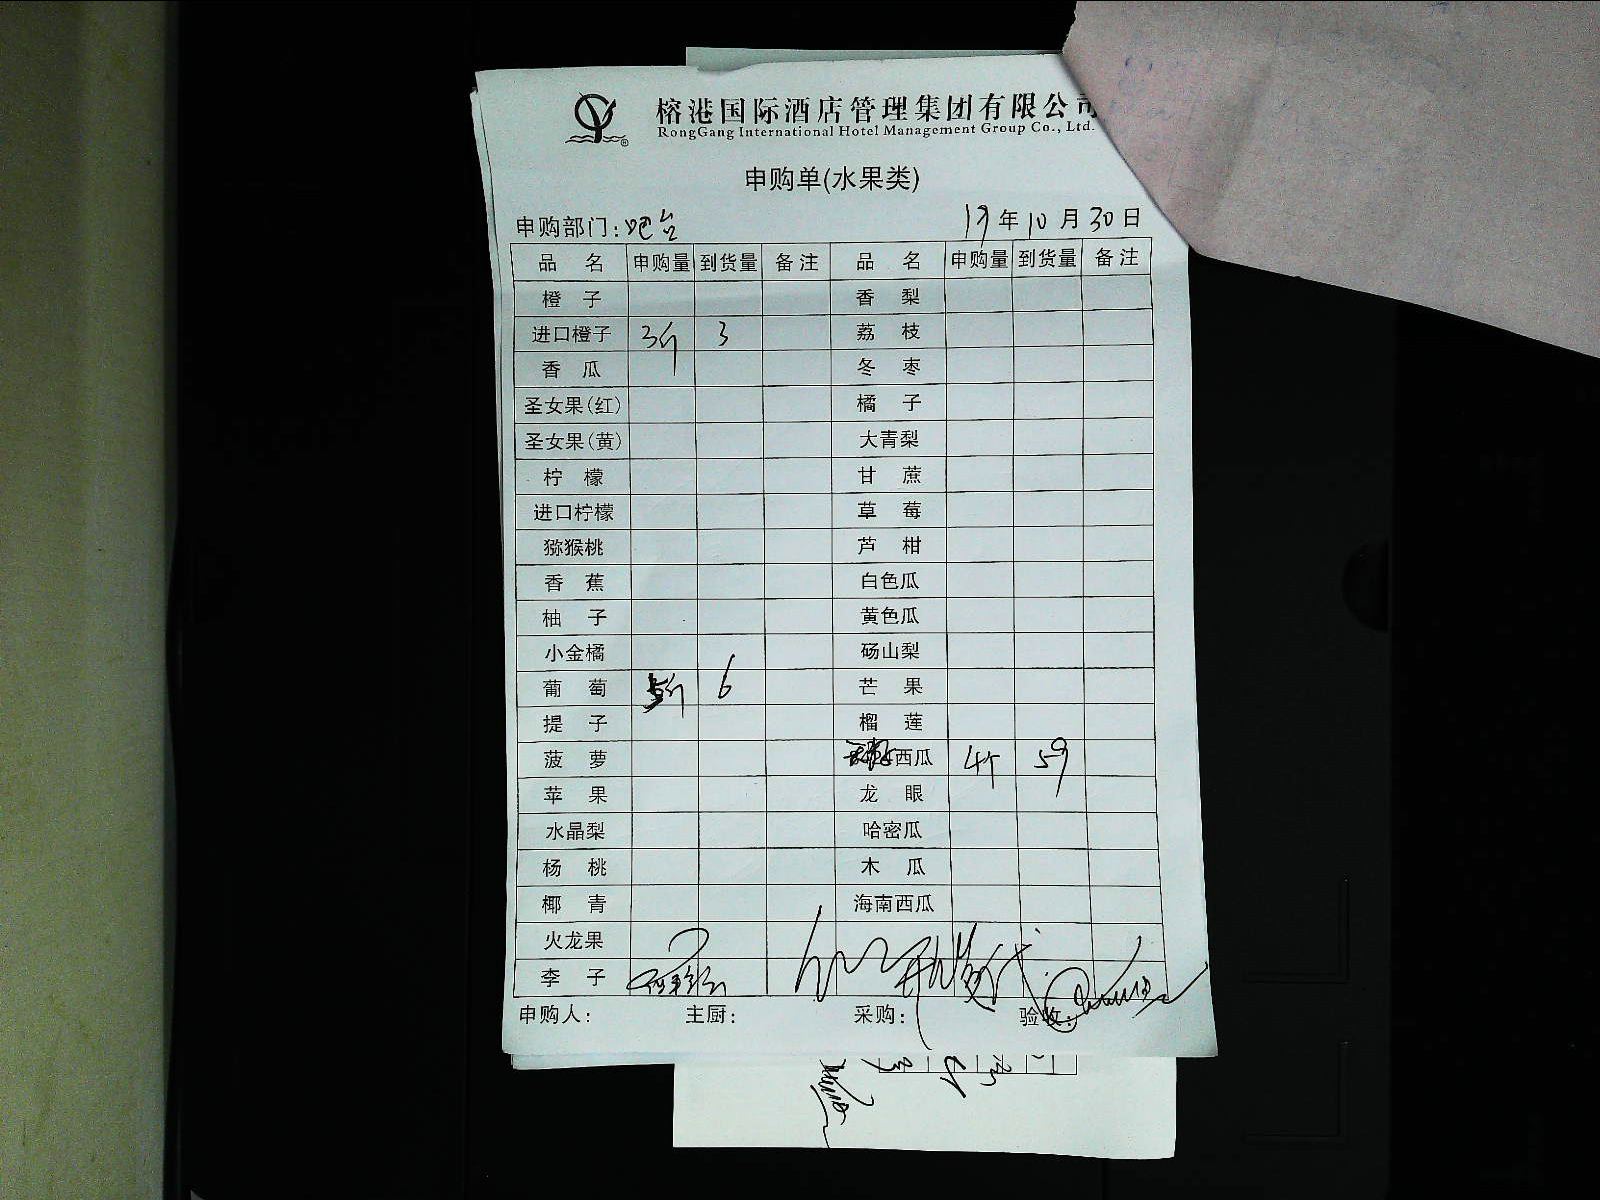 榕港国际酒店管理集团有限公司
RongGang International Hotel Management Group Co., Ltd.
申购单(水果类)
申购部门:吧台 19年10月30日
品 名 申购量 到货量 备注 品 名 申购量 到货量 备注
橙 子 香 梨
进口橙子 3斤 3 荔 枝
香 瓜 冬 枣
圣女果(红) 橘 子
圣女果(黄) 大青梨
柠 檬 甘 蔗
进口柠檬 草 莓
猕猴桃 芦 柑
香 蕉 白色瓜
柚 子 黄色瓜
小金橘 砀山梨
葡 萄 5斤 6 芒 果
提 子 榴 莲
菠 萝 西瓜 4个 59
苹 果 龙 眼
水晶梨 哈密瓜
杨 桃 木 瓜
椰 青 海南西瓜
火龙果
李 子
申购人: 主厨: 采购: 验收: